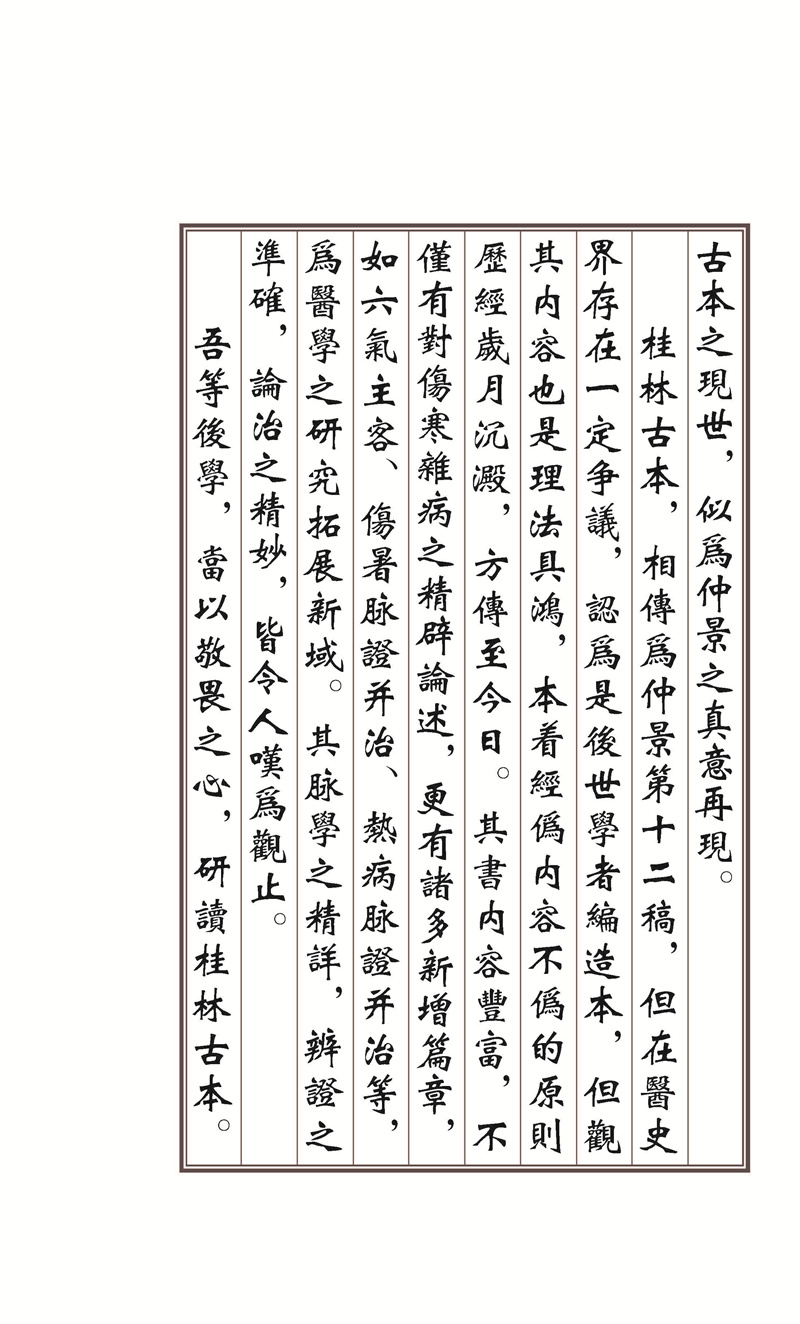 古本之現世，似爲仲景之真意再現。
桂林古本，相傳爲仲景第十二稿，但在醫史
界存在一定争議，認爲是後世學者編造本，但觀
其内容也是理法具鴻，本着經僞内容不僞的原則
歷經歲月沉澱，方傳至今日。其書内容豐富，不
僅有對傷寒雜病之精辟論述，更有諸多新增篇章，
如六氣主客、傷暑脉證并治、熱病脉證并治等，
爲醫學之研究拓展新域。其脉學之精詳，辨證之
準確，論治之精妙，皆令人嘆爲觀止。
吾等後學，當以敬畏之心，研讀桂林古本。